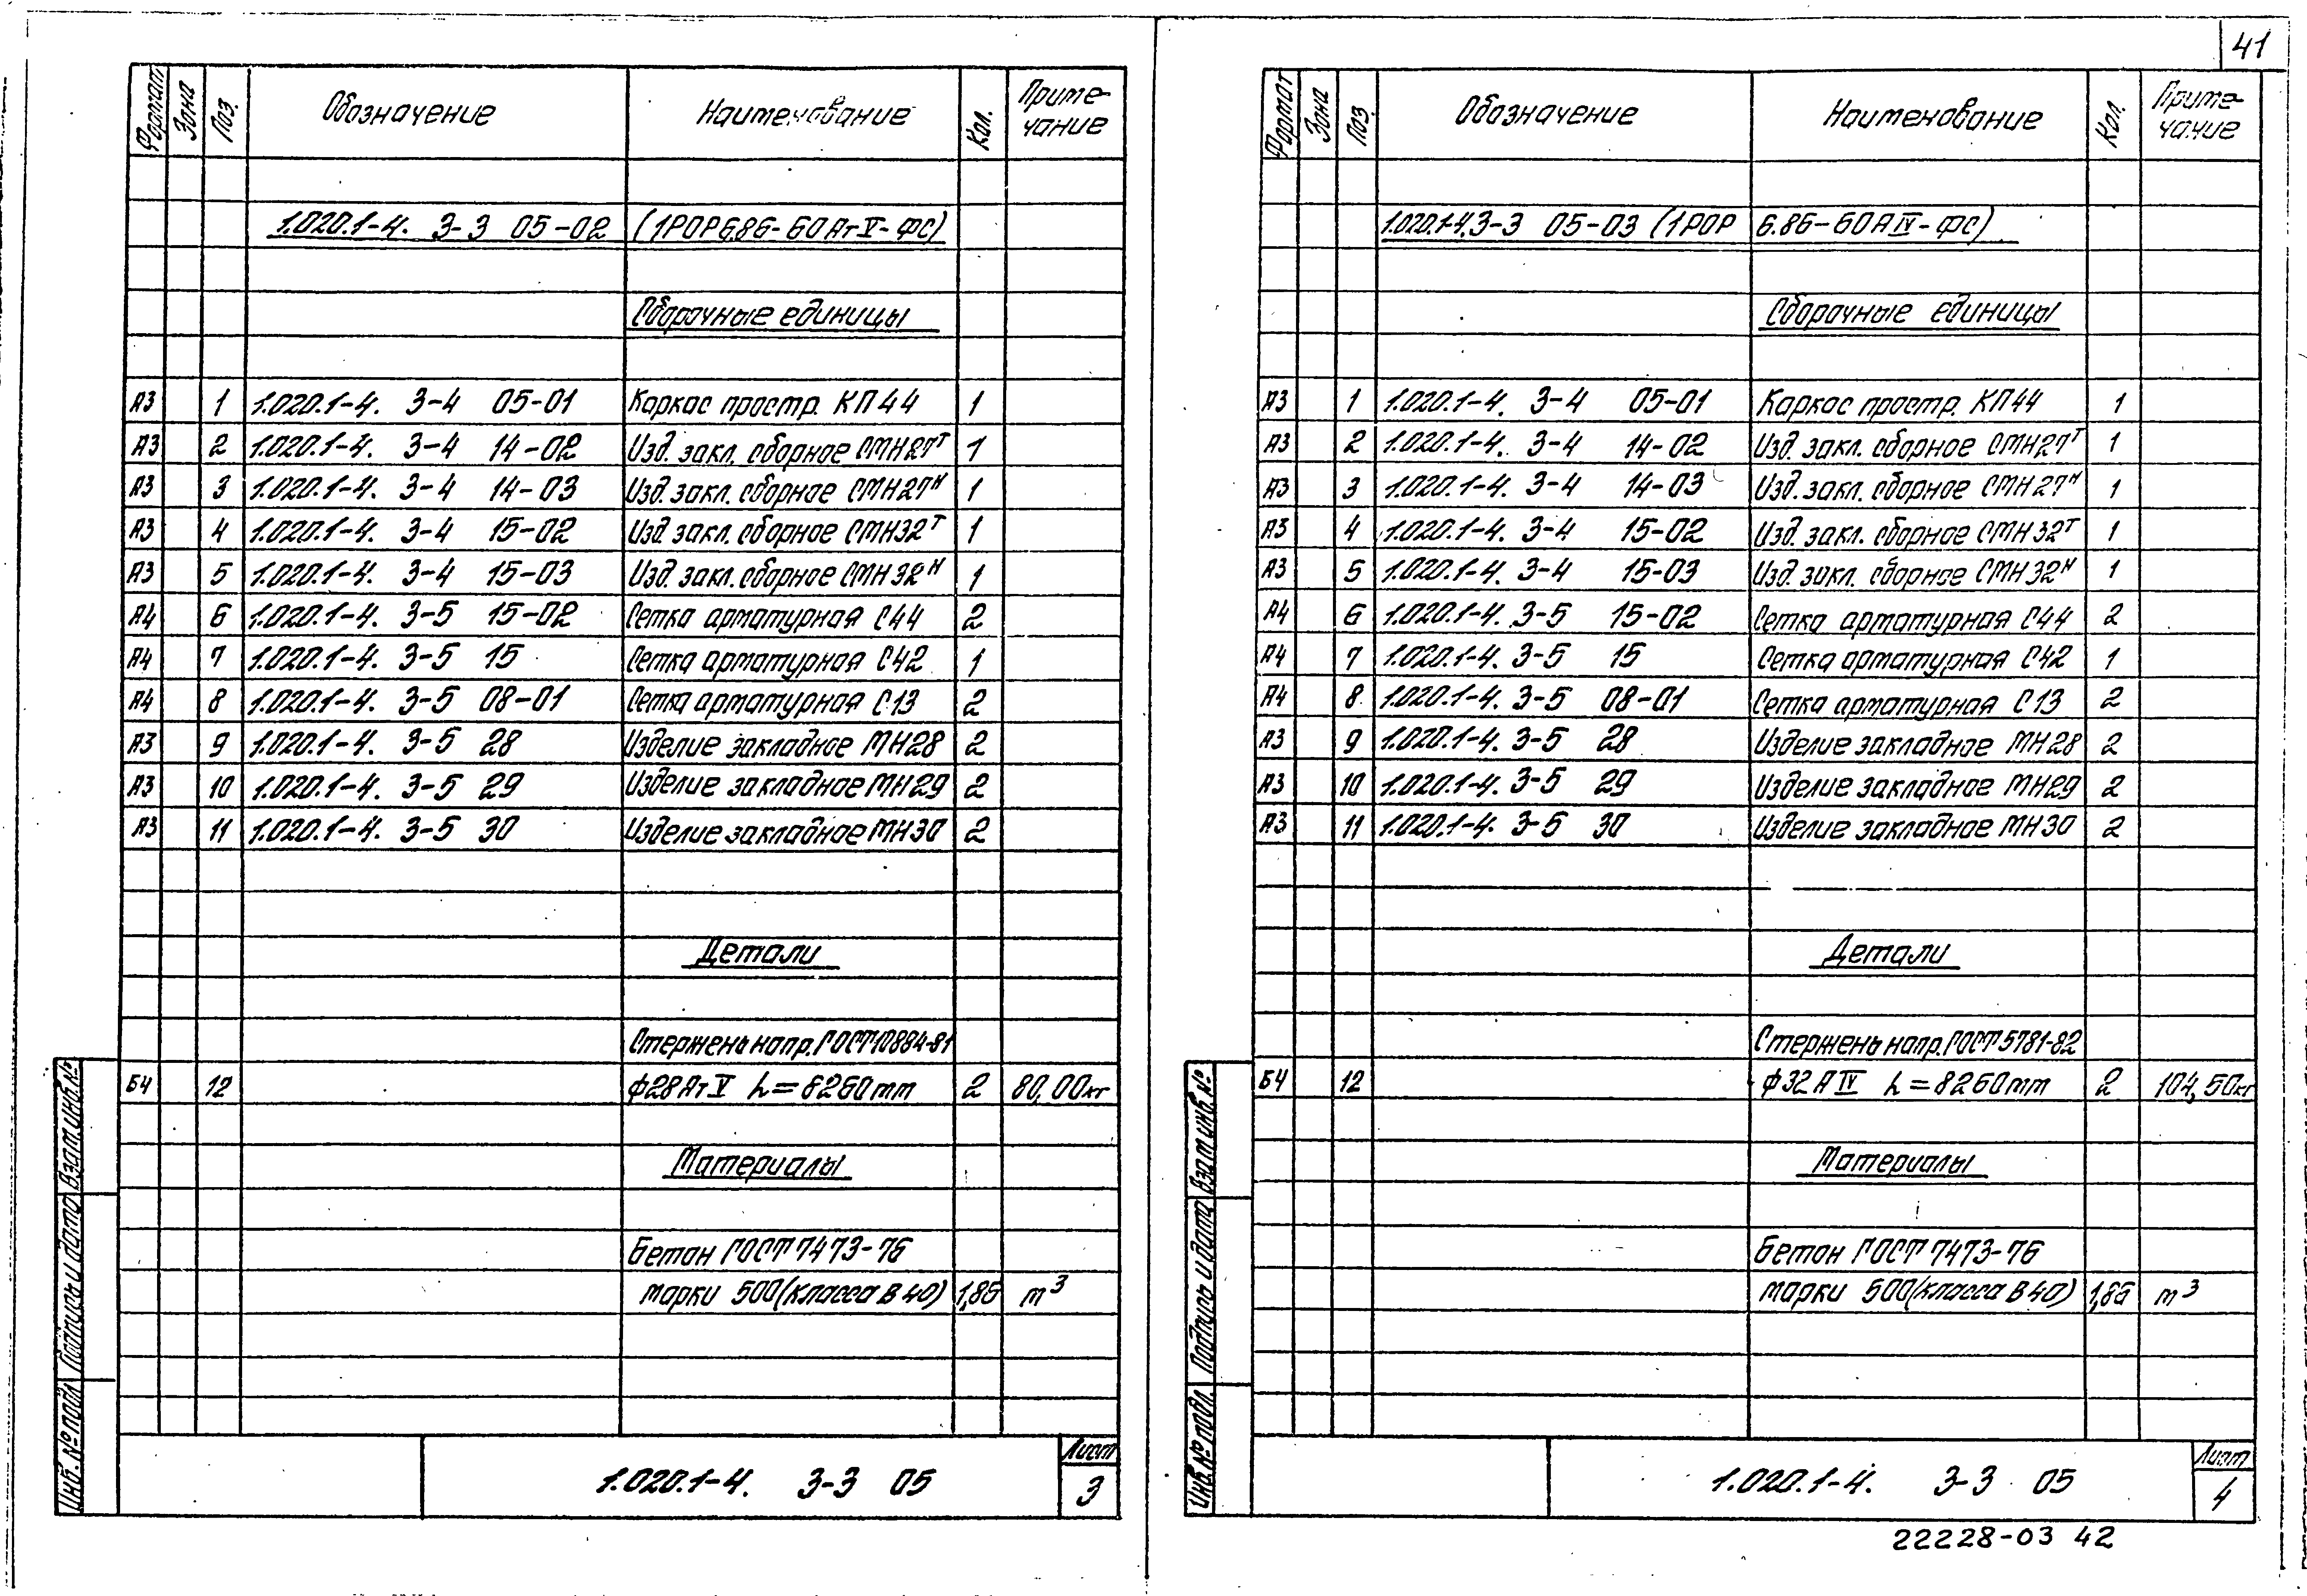 41
Формат Зона Поз. Обозначение Наименование Кол. Приме-
чание
1.020.1-4. 3-3 05-02 (1РОР6.86-60АтV-ФС)
Сборочные единицы
А3 1 1.020.1-4. 3-4 05-01 Каркас простр. КП44 1
А3 2 1.020.1-4. 3-4 14-02 Изд. закл. сборное СМН27т 1
А3 3 1.020.1-4. 3-4 14-03 Изд. закл. сборное СМН27н 1
А3 4 1.020.1-4. 3-4 15-02 Изд. закл. сборное СМН32т 1
А3 5 1.020.1-4. 3-4 15-03 Изд. закл. сборное СМН32н 1
А4 6 1.020.1-4. 3-5 15-02 Сетка арматурная С44 2
А4 7 1.020.1-4. 3-5 15 Сетка арматурная С42 1
А4 8 1.020.1-4. 3-5 08-01 Сетка арматурная С13 2
А3 9 1.020.1-4. 3-5 28 Изделие закладное МН28 2
А3 10 1.020.1-4. 3-5 29 Изделие закладное МН29 2
А3 11 1.020.1-4. 3-5 30 Изделие закладное МН30 2
Детали
Стержень напр. ГОСТ10884-81
Б4 12 ф28АтV L=8260мм 2 80,00кг
Материалы
Бетон ГОСТ 7473-76
марки 500(класса В40) 1,86 м³
Инв. № подл. Подпись и дата Взам инв. №
1.020.1-4. 3-3 05
Лист
3
Формат Зона Поз. Обозначение Наименование Кол. Приме-
чание
1.020.1-4.3-3 05-03 (1РОР 6.86-60АIV-ФС)
Сборочные единицы
А3 1 1.020.1-4. 3-4 05-01 Каркас простр. КП44 1
А3 2 1.020.1-4. 3-4 14-02 Изд. закл. сборное СМН27т 1
А3 3 1.020.1-4. 3-4 14-03 Изд. закл. сборное СМН27н 1
А3 4 1.020.1-4. 3-4 15-02 Изд. закл. сборное СМН32т 1
А3 5 1.020.1-4. 3-4 15-03 Изд. закл. сборное СМН32н 1
А4 6 1.020.1-4. 3-5 15-02 Сетка арматурная С44 2
А4 7 1.020.1-4. 3-5 15 Сетка арматурная С42 1
А4 8 1.020.1-4. 3-5 08-01 Сетка арматурная С13 2
А3 9 1.020.1-4. 3-5 28 Изделие закладное МН28 2
А3 10 1.020.1-4. 3-5 29 Изделие закладное МН29 2
А3 11 1.020.1-4. 3-5 30 Изделие закладное МН30 2
Детали
Стержень напр. ГОСТ 5781-82
Б4 12 ф32АIV L=8260мм 2 104,50кг
Материалы
Бетон ГОСТ 7473-76
марки 500(класса В40) 1,86 м³
Инв. № подл. Подпись и дата Взам инв. №
1.020.1-4. 3-3 05
Лист
4
22228-03 42